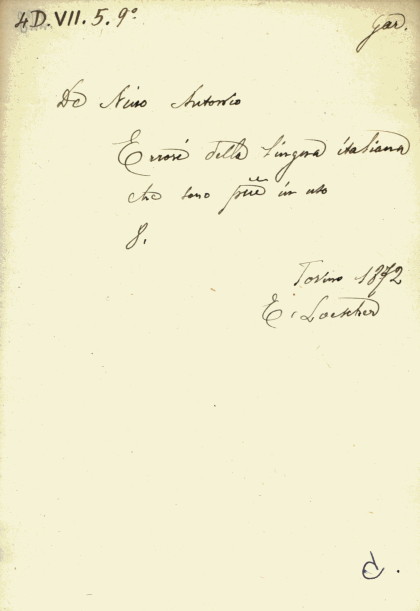 4 D. VII. 5. 9º
Gar.
De Nino Antonio
Errori della lingua italiana
che sono più in uso
8.
Torino 1872
E. Loescher
C.